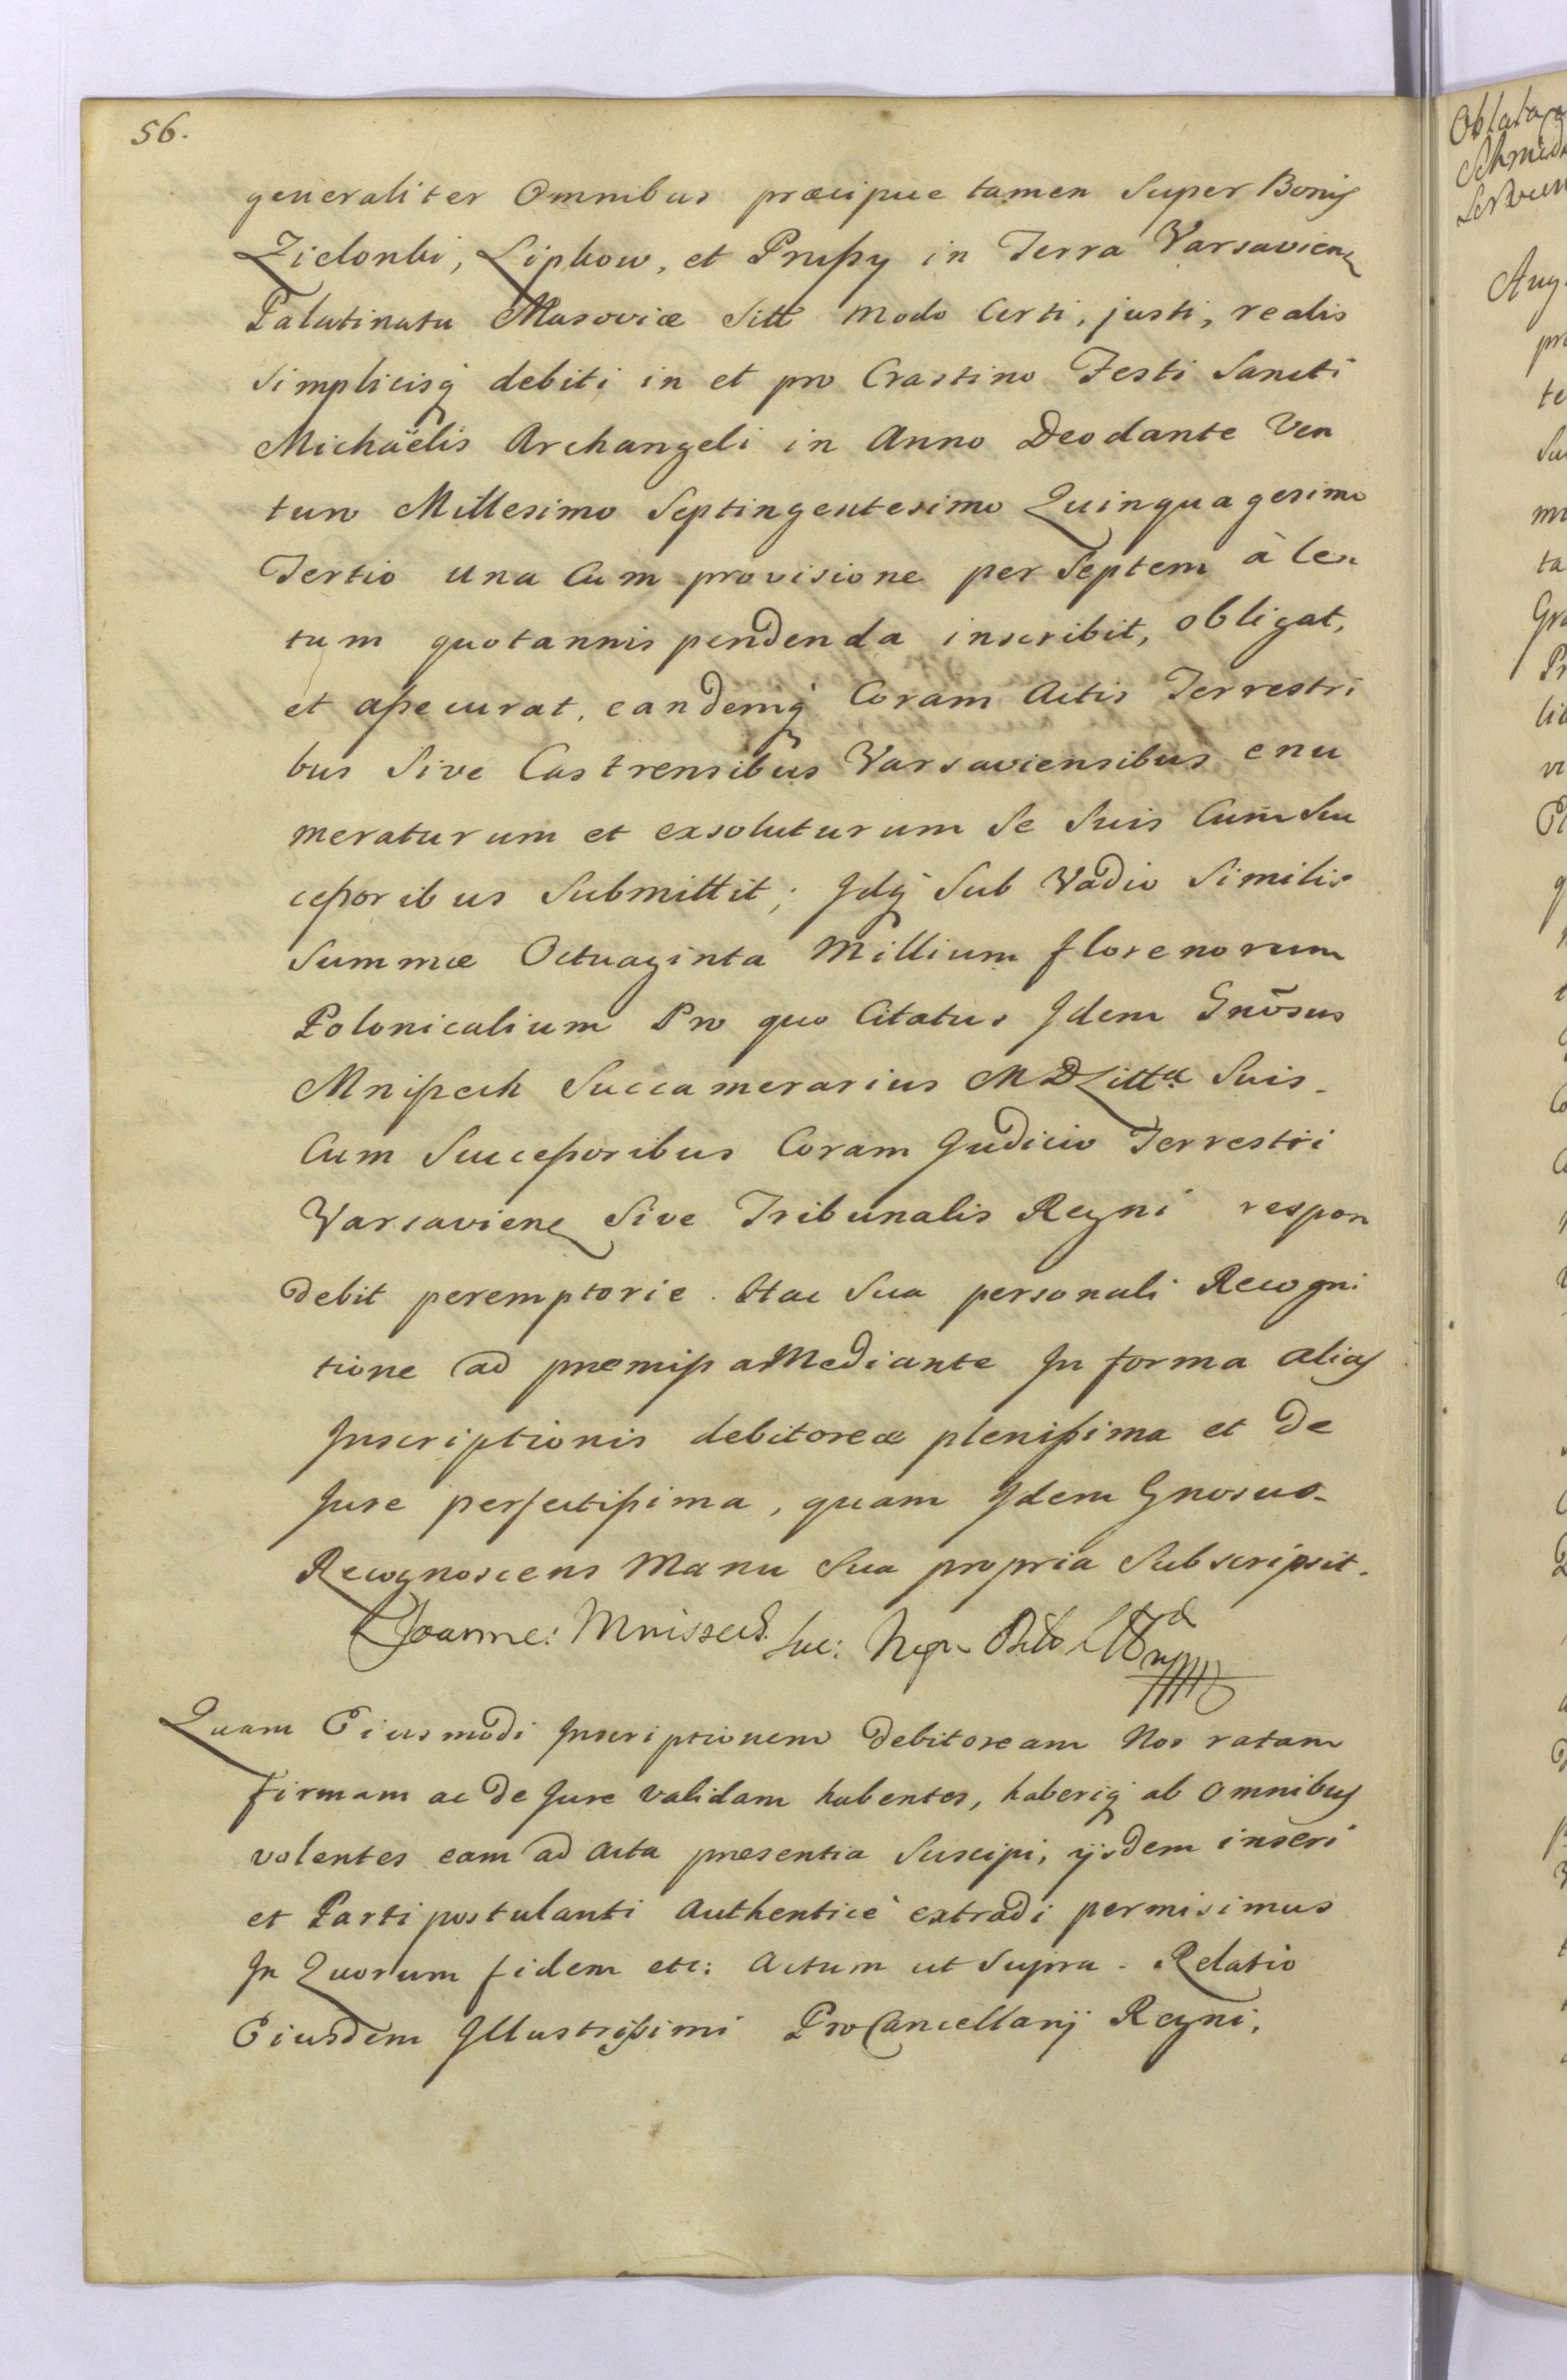 56.
generaliter Omnibus præcipue tamen Super Bonis
Zielonki, Lipkow, et Prussy in Terra Varsavien
Palatinatu Masoviæ Sitt modo Certi, justi, realis
Simplicisq debiti in et pro Crastino Festi Sancti
Michaëlis Archangeli in Anno Deo dante Ven
turo Millesimo Septingentesimo Quinquagesimo
Tertio una Cum provisione per Septem à Cen
tum quotannis pendenda inscribit, obligat,
et assecurat, eandemq Coram Actis Terrestri
bus Sive Castrensibus Varsaviensibus enu
meraturum et exsoluturum Se Suis Cum Suc
cessoribus Submittit; Idq Sub Vadio Similis
Summæ Octuaginta Millium florenorum
Polonicalium Pro quo Citatus Idem Gnōsus
Mniszech Succamerarius M D Littæ Suis
Cum Successoribus Coram Judicio Terrestri
Varsavien Sive Tribunalis Regni respon
debit peremptorie. Hac Sua personali Recogni
tione ad præmissa Mediante In forma alias
Inscriptionis debitoreæ plenissima et de
Jure perfectissima, quam Idem Gnosus
Recognoscens Manu Sua propria Subscripsit.
Joannes Mniszech
Quam Eiusmodi Inscriptionem debitoream Nos ratam
firmam ac de Jure validam habentes, haberiq ab omnibus
volentes eam ad Acta præsentia Suscipi, ijsdem inseri
et Parti postulanti Authenticè extradi permisimus
In Quorum fidem etc: Actum ut Supra. Relatio
Eiusdem Illustrissimi ProCancellarij Regni.
Oblata
Schmid